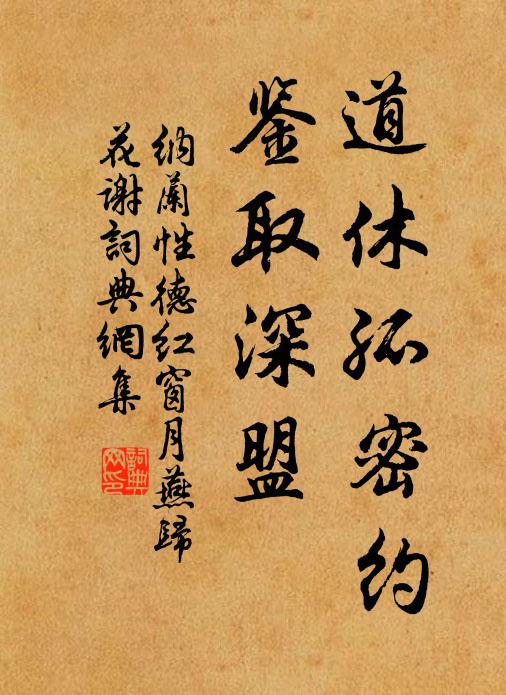 道休孤密约
鉴取深盟
纳兰性德红窗月燕归
花谢词典网集
词典网印